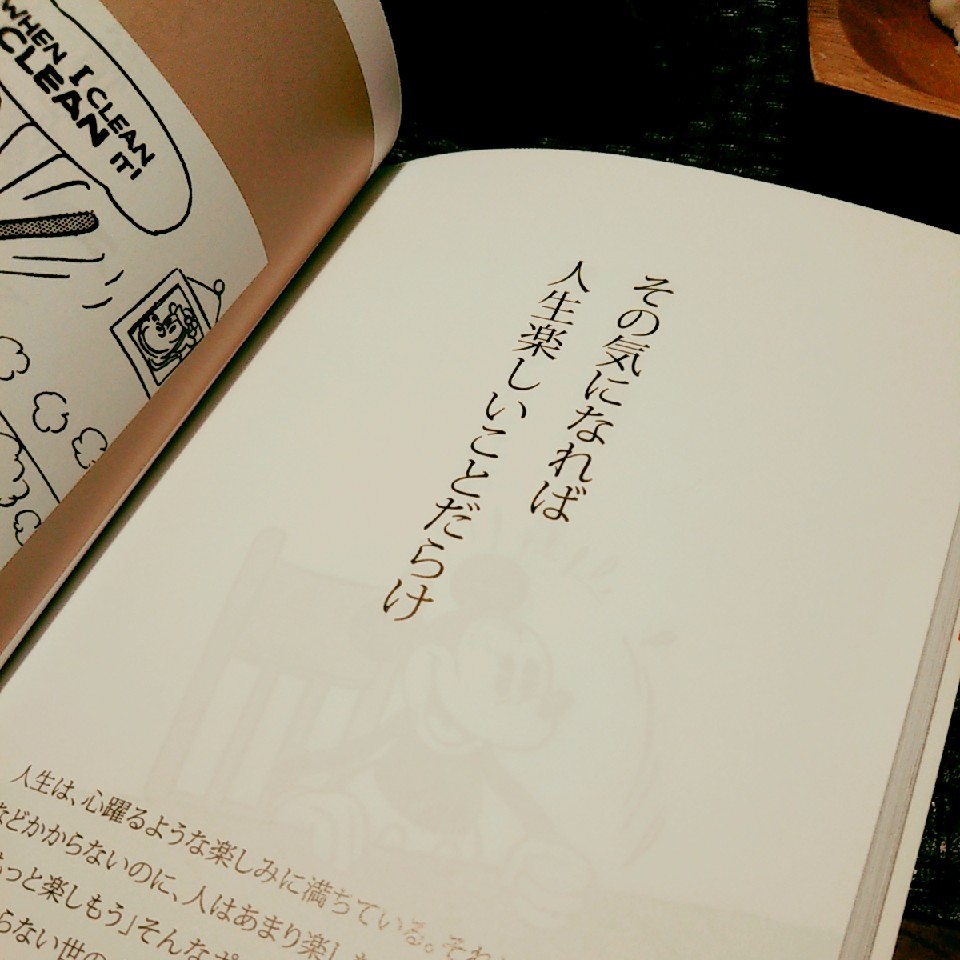 WHEN I CLEAN
CLEAN IT!
その気になれば
人生楽しいことだらけ
人生は、心躍るような楽しみに満ちている。それ
などかからないのに、人はあまり楽し
っと楽しもう」そんなポ
らない世の